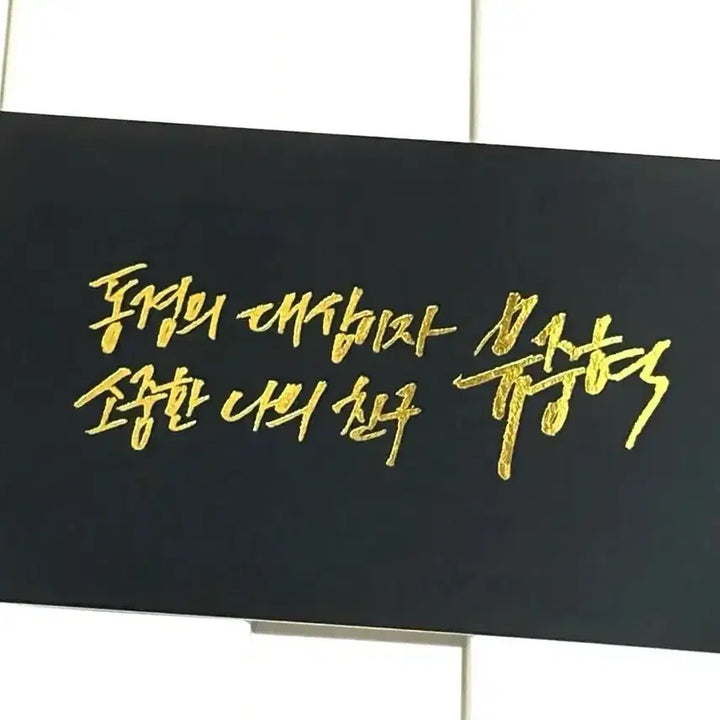 동경의 대상이자
소중한 나의 친구
유중혁